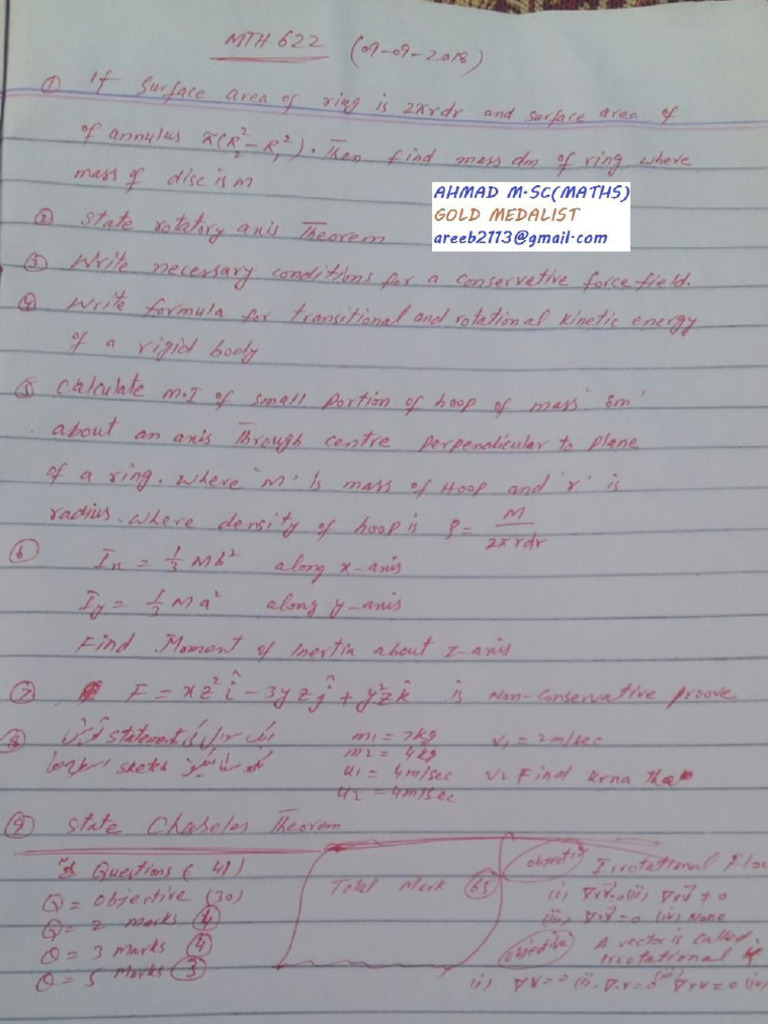 MTH 622 (09-09-2018)
① If surface area of ring is 2πrdr and surface area of
of annulus π(R₂² - R₁²). Then find mass dm of ring where
mass of disc is M
AHMAD M.SC(MATHS)
GOLD MEDALIST
areeb2113@gmail.com
② State rotatory axis Theorem
③ Write necessary conditions for a conservative force field.
④ Write formula for transitional and rotational kinetic energy
of a rigid body
⑤ Calculate M.I of small portion of hoop of mass 'δm'
about an axis Through centre perpendicular to plane
of a ring. where 'M' is mass of Hoop and 'r' is
radius. where density of hoop is ρ = M / 2πrdr
⑥ Ix = 1/3 Mb² along x-axis
Iy = 1/3 Ma² along y-axis
Find Moment of inertia about z-axis
⑦ F = xz²î - 3yzĵ + y²zk̂ is Non-Conservative proove
⑧ statement m1 = 7kg v1 = 2m/sec
sketch m2 = 4kg
u1 = 4m/sec v2 Find krna tha
u2 = 4m/sec
⑨ State Chaseles Theorem
Questions (41)
Q = Objective (30)
Q = 2 marks ④
Q = 3 marks ④
Q = 5 marks ③
Total Mark 65
objective Irrotational Flo
(i) ∇×V⃗=0 (ii) ∇×V⃗ ≠ 0
(iii) ∇.V⃗ = 0 (iv) None
objective A vector is called
irrotational if
(i) ∇V = 0 (ii) ∇.V = 0 (iii) ∇×V = 0 (iv)